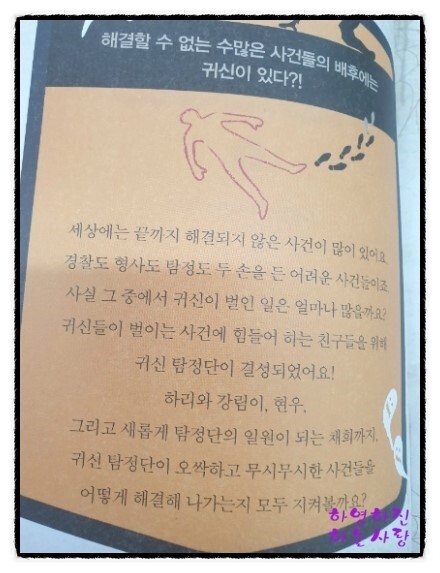 해결할 수 없는 수많은 사건들의 배후에는
귀신이 있다?!
세상에는 끝까지 해결되지 않은 사건이 많이 있어요.
경찰도 형사도 탐정도 두 손을 든 어려운 사건들이죠.
사실 그 중에서 귀신이 벌인 일은 얼마나 많을까요?
귀신들이 벌이는 사건에 힘들어 하는 친구들을 위해
귀신 탐정단이 결성되었어요!
하리와 강림이, 현우,
그리고 새롭게 탐정단의 일원이 되는 채희까지,
귀신 탐정단이 오싹하고 무시무시한 사건들을
어떻게 해결해 나가는지 모두 지켜볼까요?
하영하진
하은사랑